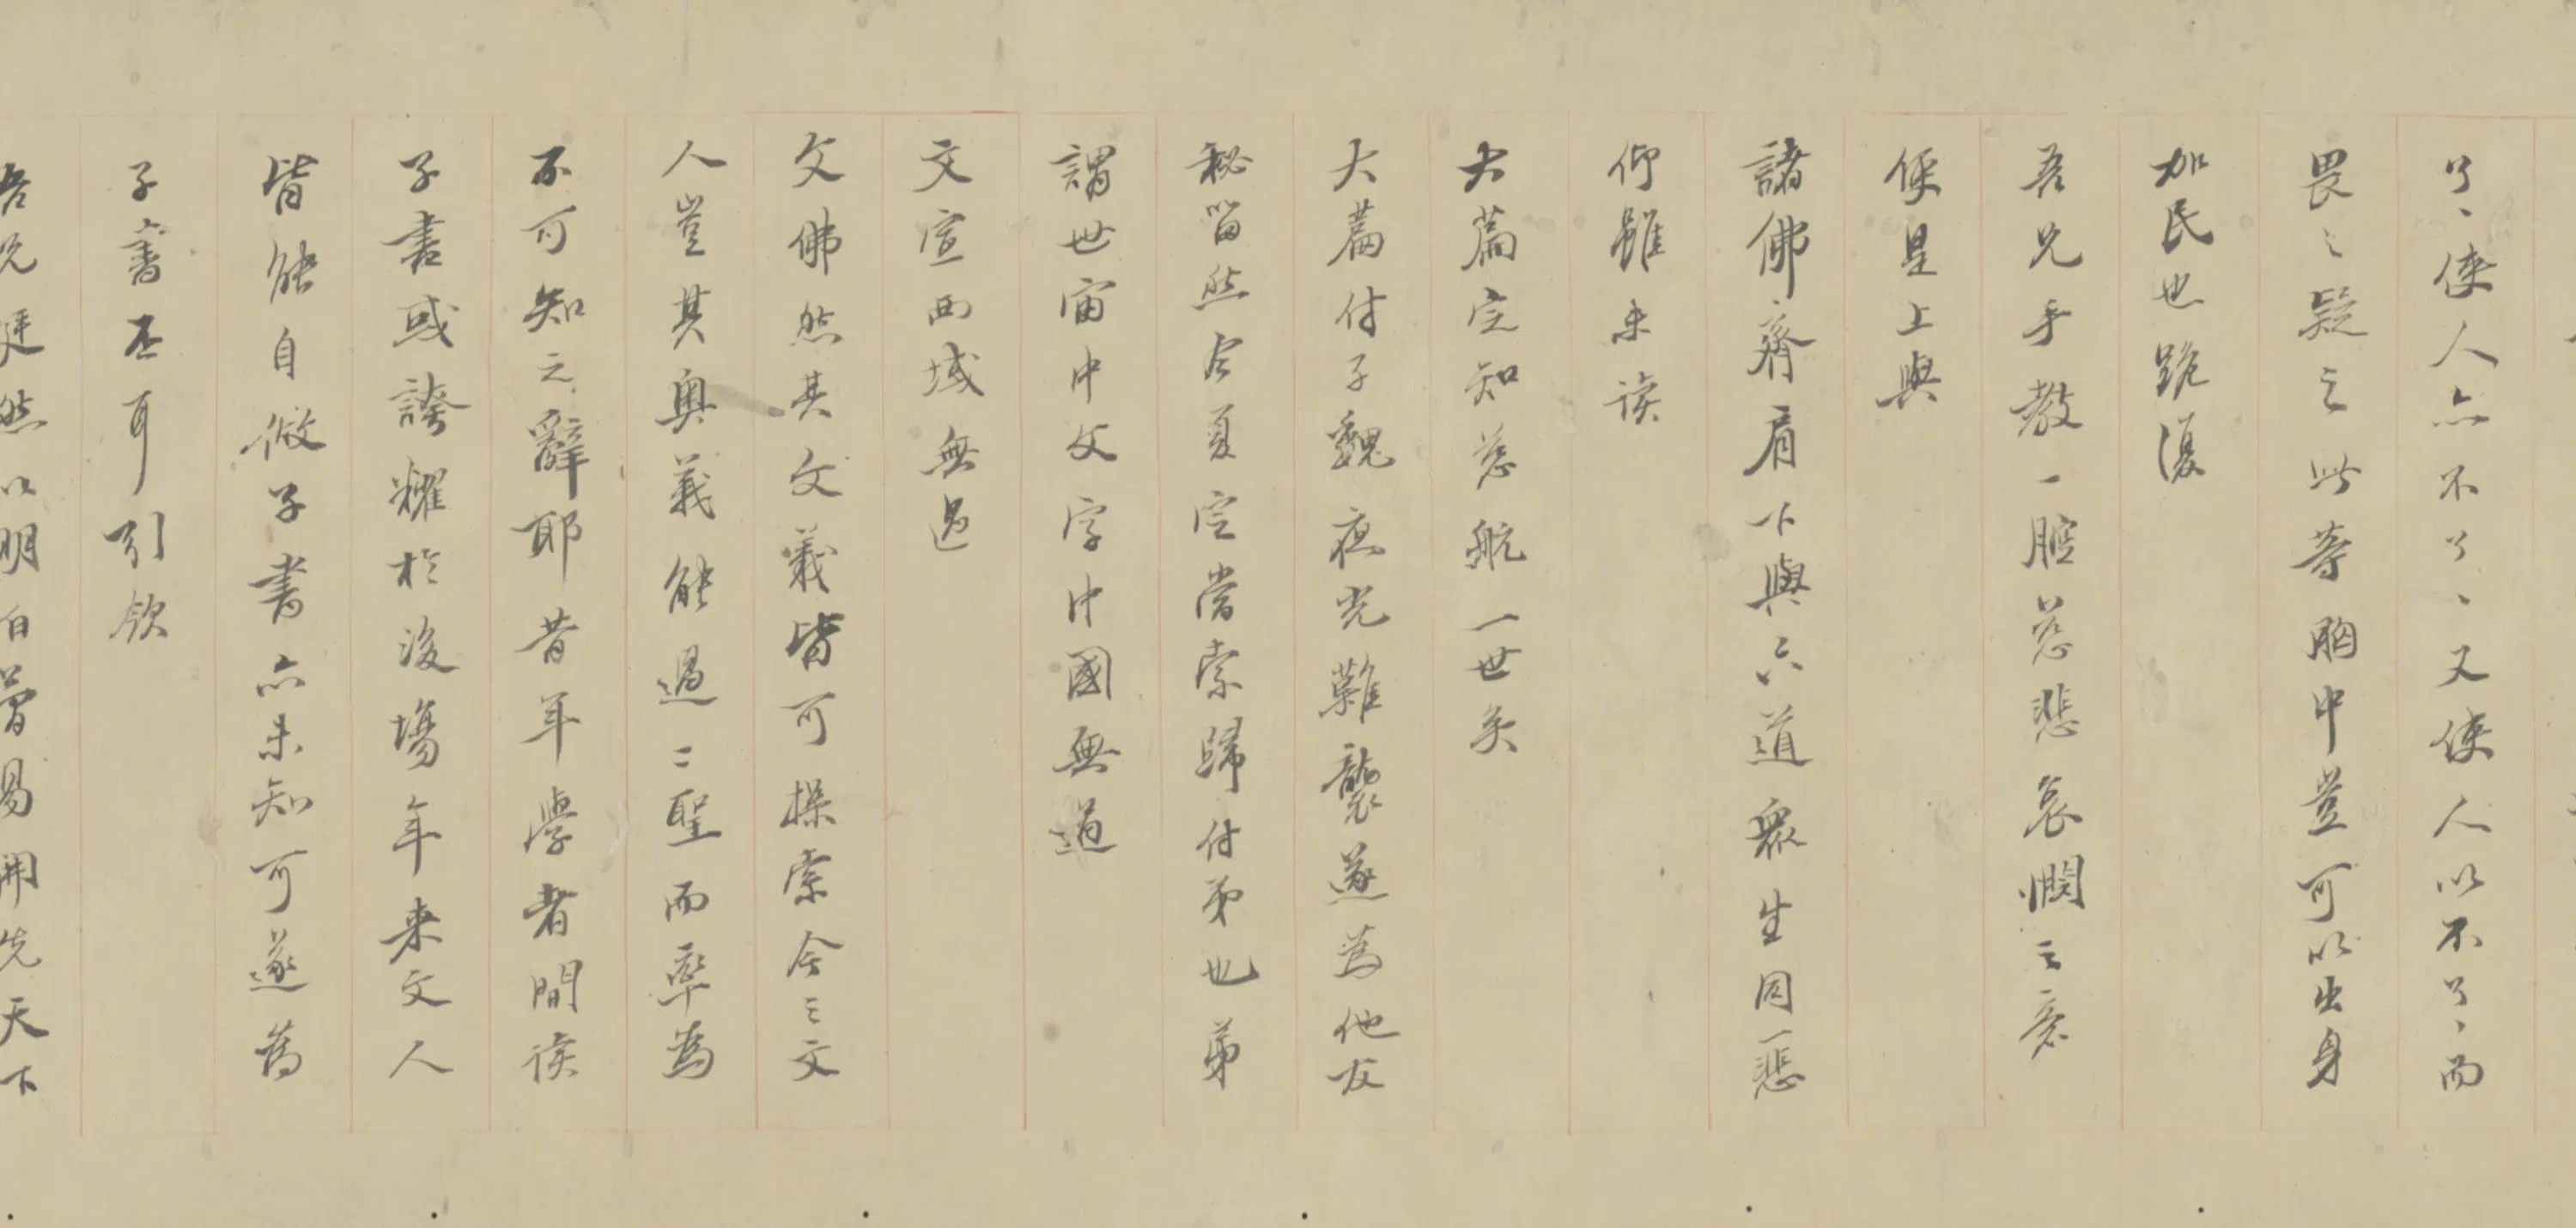 了、使人亦不了、又使人以不了、而
畏之疑之此等胸中豈可以出身
加民也跪復
吾兄手教一腔慈悲哀憫之意
便是上與
諸佛齊肩下與六道衆生同一悲
仰雖未讀
大篇定知慈航一世矣
大篇付子魏夜光難襲遂為他友
秘留然今夏定當索歸付弟也弟
謂世宙中文字中國無過
文宣西域無過
文佛然其文義皆可探索今之文
人豈其奧義能過二聖而率為
不可知之辭耶昔年學者間讀
子書或誇耀於後場年來文人
皆能自做子書亦未知可遂為
子書否耶引欽
吾兄 然以明白 易開先天下